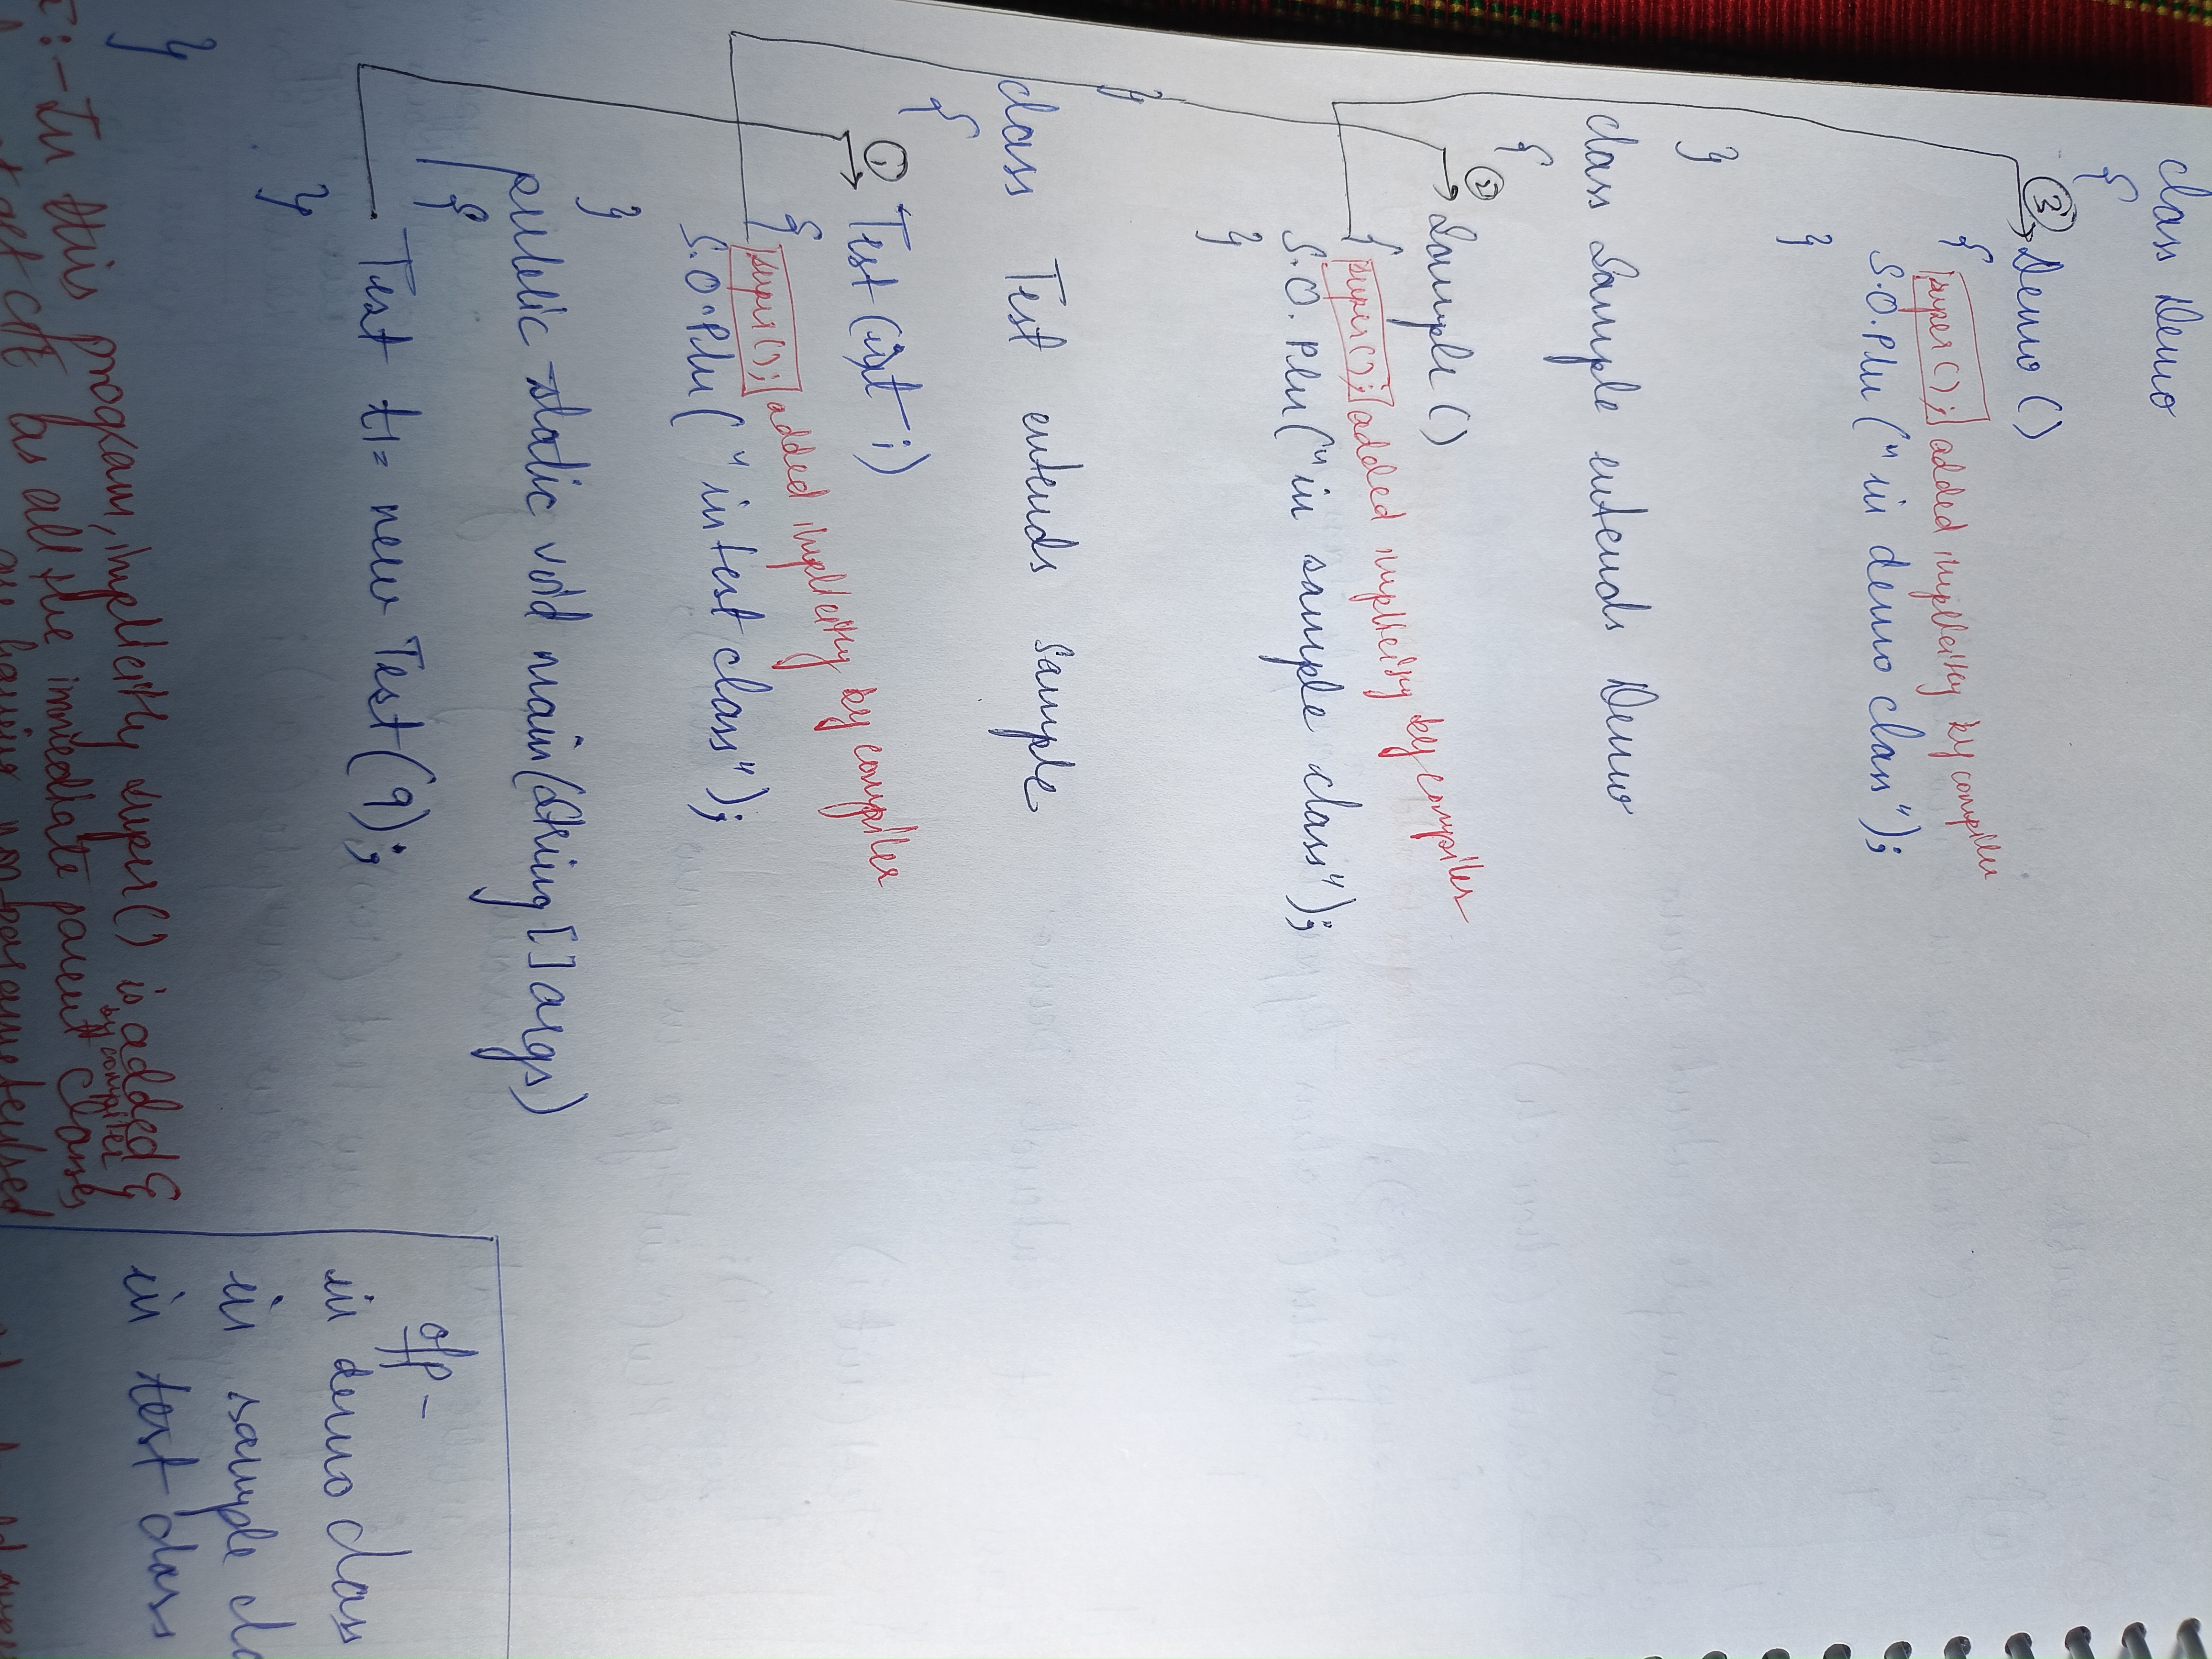 class Demo
{
③ Demo ()
{ super(); added implicitly by compiler
S.O.Pln ("in demo class");
}
}
class Sample extends Demo
{
② Sample ()
{ super(); added implicitly by compiler
S.O. Pln ("in sample class");
}
}
class Test extends Sample
{
① Test (int i)
{ super(); added implicitly by compiler
S.O.Pln ("in test class");
}
public static void main(String [] args)
{
Test t1= new Test (9);
}
}
o/p -
in demo class
in sample cla
in test class
:- In this program, implicitly super() is added &
by compiler
get CTE as all the immediate parent classes
are having non-parameterised